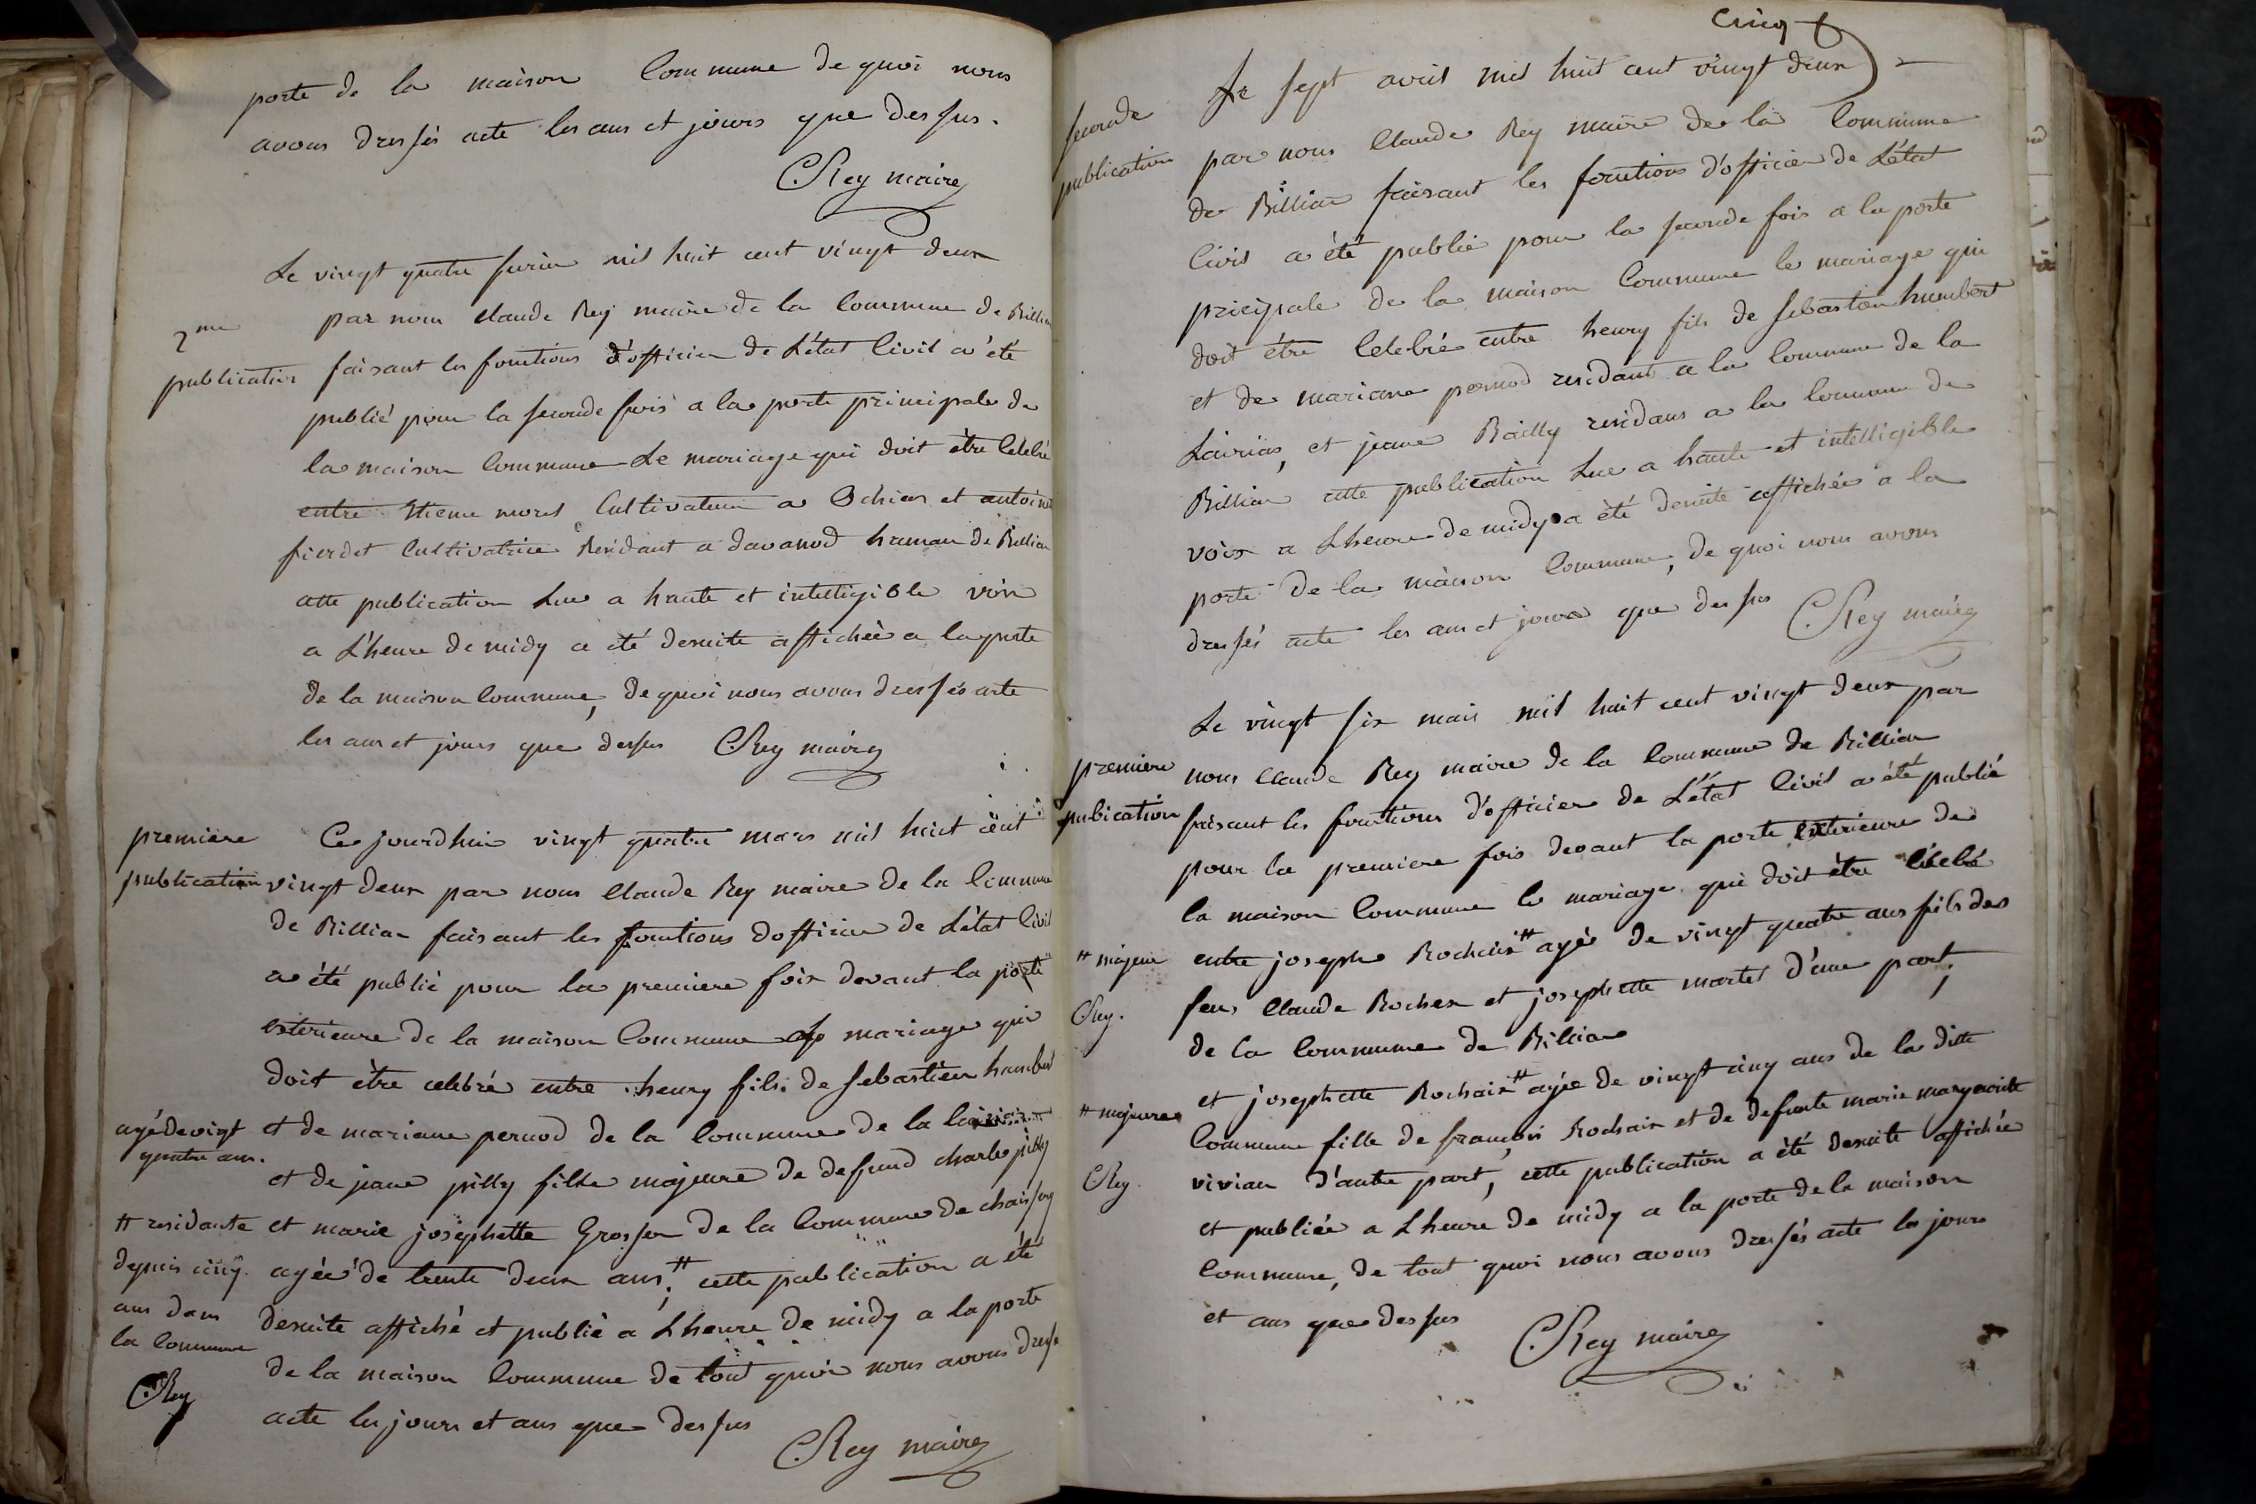 porte de la maison Commune de quoi nous
avons dressés acte les ans et jours que dessus.
CRey maire
Le vingt quatre mil huit cent vingt deux
2me
publication
par nous Claude Rey maire de la Commune de Billia
faisant les fonctions d'officier de L'état Civil a été
publié pour la seconde fois a la porte principale de
la maison Commune Le mariage qui doit être Celebré
entre Etiene morel Cultivateur a Ochias et antoine
fierdet Cultivatrice Residant a davanod hamau de Billia
cette publication Lue a haute et intelligible voix
a L'heure de midy a été desuite affichée a la porte
de la maison Commune, de quoi nous avons dressés acte
les ans et jours que dessus CRey maire
premiere
publication
Ce jourdhui vingt quatre mars mil huit cent
vingt deux par nous Claude Rey maire de la Commune
de Billia faisant les fonctions dofficier de L'état Civil
a été publié pour la premiere fois devant la porte
exterieure de la maison Commune Le mariage qui
doit être celebré entre henry fils de sebastien humbert
agé de vigt
quatre ans.
et de mariane pernod de la Commune de la
et de jeane pilly fille majeure de defund charle pilly
# residante
depuis cinq
ans dans
la Commune
CRey
et marie josephette Grosfer de la Commune de
agée de trente deux ans #; cette publication a été
desuite affiché et publié a Lheure de midy a la porte
de la maison Commune de tout quoi nous avons dressé
acte les jours et ans que dessus
CRey maire
Cinq
seconde
publication
Le sept avril mil huit cent vingt deux
par nous Claude Rey maire de la Commune
de Billia faisant les fonctions d'officier de L'état
Civil a été publié pour la seconde fois a la porte
pricipale de la maison Commune le mariage qui
doit être Celebré entre henry fils de sebastien humbert
et de mariane pernod residant a la Commune de la
Lairias, et jeane Bailly residans a la Commune de
Billia cette publication Lue a haute et intelligible
voix a Lheure de midy a été desuite affichée a la
porte de la maison Commune, de quoi nous avons
dressés acte les ans et jours que dessus CRey maire
Le vingt six mais mil huit cent vingt deux par
premiere
pubication
nous Claude Rey maire de la Commune de Billia
faisant les fonctions d'officier de L'état Civil a été publié
pour la premiere fois devant la porte exterieure de
la maison Commune le mariage qui doit être
# majeur
CRey.
entre joseph Rochaix # agé de vingt quatre ans fils des
feus Claude Rochex et josephette martel d'une part,
de la Commune de Billia
# majeure
CRey
et josephette Rochaix # agée de vingt cinq ans de la ditte
Commune fille de françois Rochaix et de defunte marie marguerite
vivian d'autre part, cette publication a été desuite affichée
et publiée a Lheure de midy a la porte de la maison
Commune, de tout quoi nous avons dressés acte les jours
et ans que dessus
CRey maire